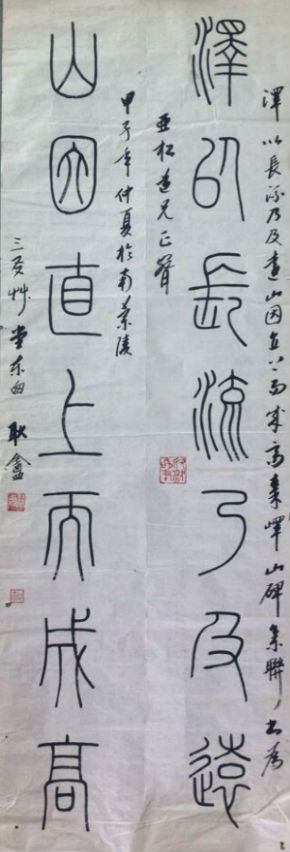 澤以長流乃及遠山因直上而成高秦嶧山碑集聯書為
澤以長流乃及遠
亞松道兄正
甲子年仲夏於南蘭陵
山因直上而成高
三 艸堂 耿鑫